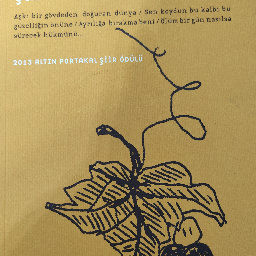 Aşkı bir gövdeden doğuran dünya / Sen koydun bu kalbi bu
güzelliğin önüne / Ayrılığa bırakma beni / Ölüm bir gün nasılsa
sürecek hükmünü...
2013 ALTIN PORTAKAL ŞİİR ÖDÜLÜ